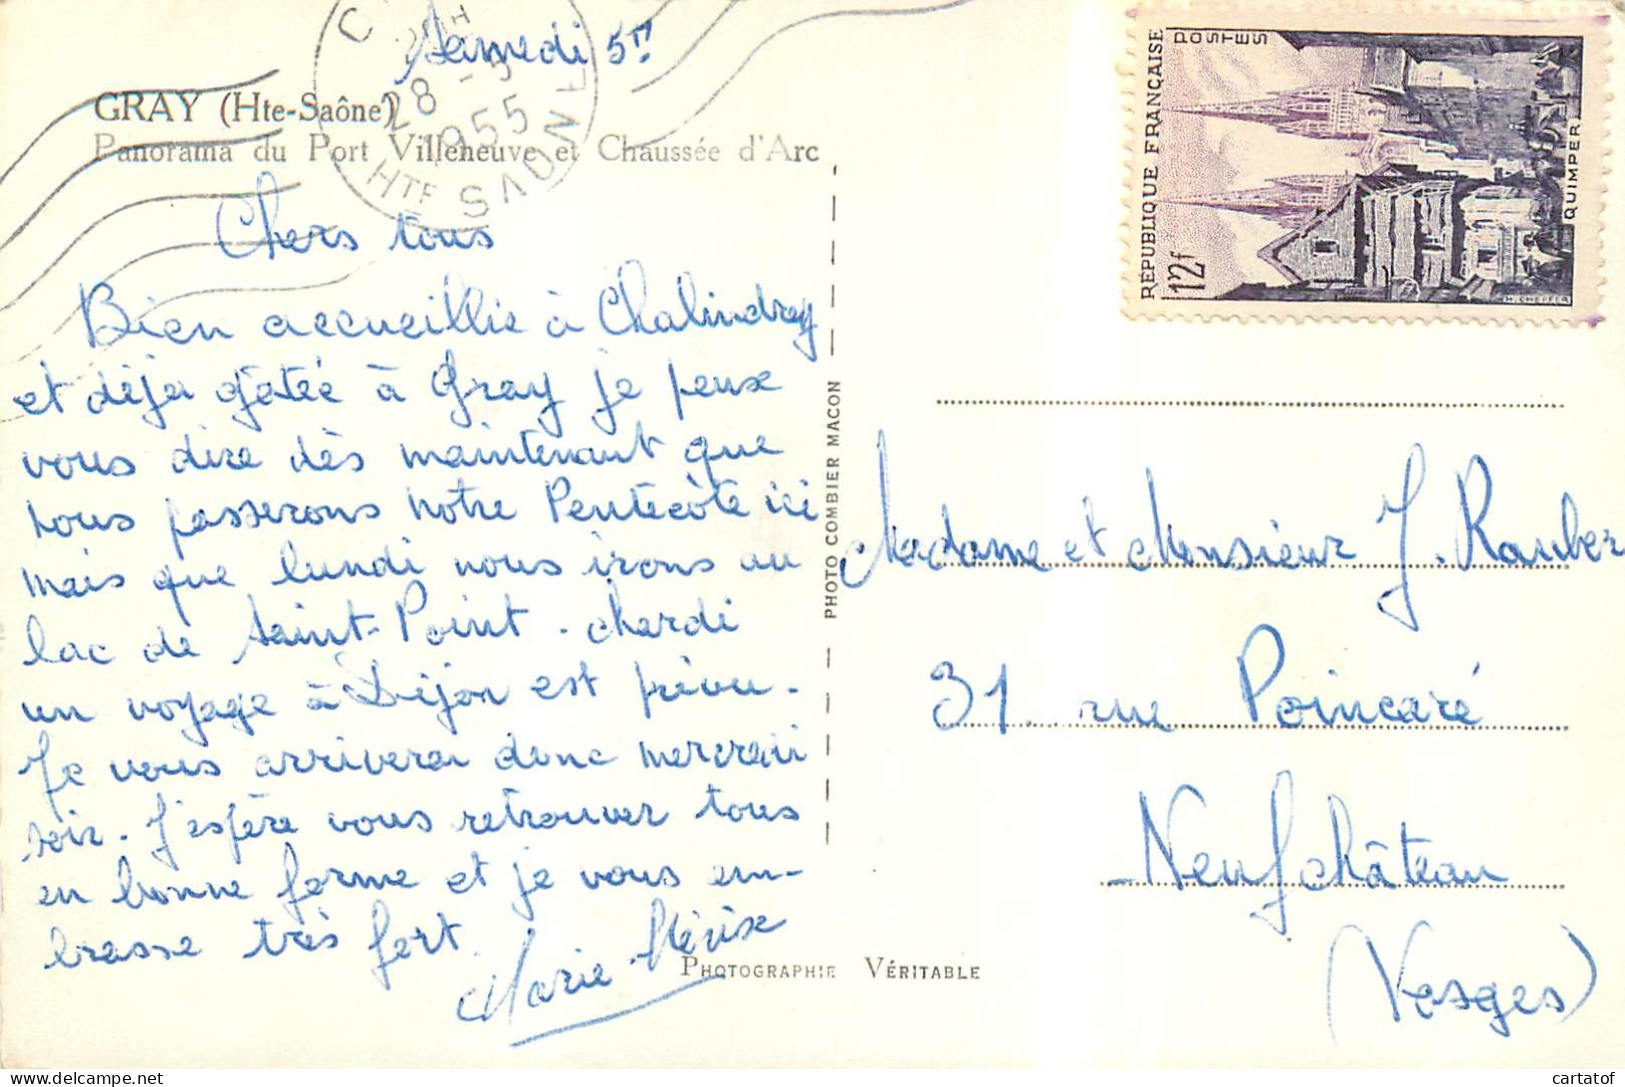 Samedi 5h
GRAY (Hte-Saône)
Panorama du Port Villeneuve et Chaussée d'Arc
28 - 5
1955
HTE SAONE
Chers tous
Bien accueillie à Chalindrey
et déjà gâtée à Gray je peux
vous dire dès maintenant que
nous passerons notre Pentecôte ici
mais que lundi nous irons au
lac de Saint-Point. Mardi
un voyage à Dijon est prévu.
Je vous arriverai donc mercredi
soir. J'espère vous retrouver tous
en bonne forme et je vous em-
brasse très fort.
Marie
PHOTO COMBIER MACON
PHOTOGRAPHIE VÉRITABLE
REPUBLIQUE FRANÇAISE
POSTES
12f
QUIMPER
H. CHEFFER
Madame et Monsieur J. Rauber
31 rue Poincaré
Neufchâteau
(Vosges)
cartatof